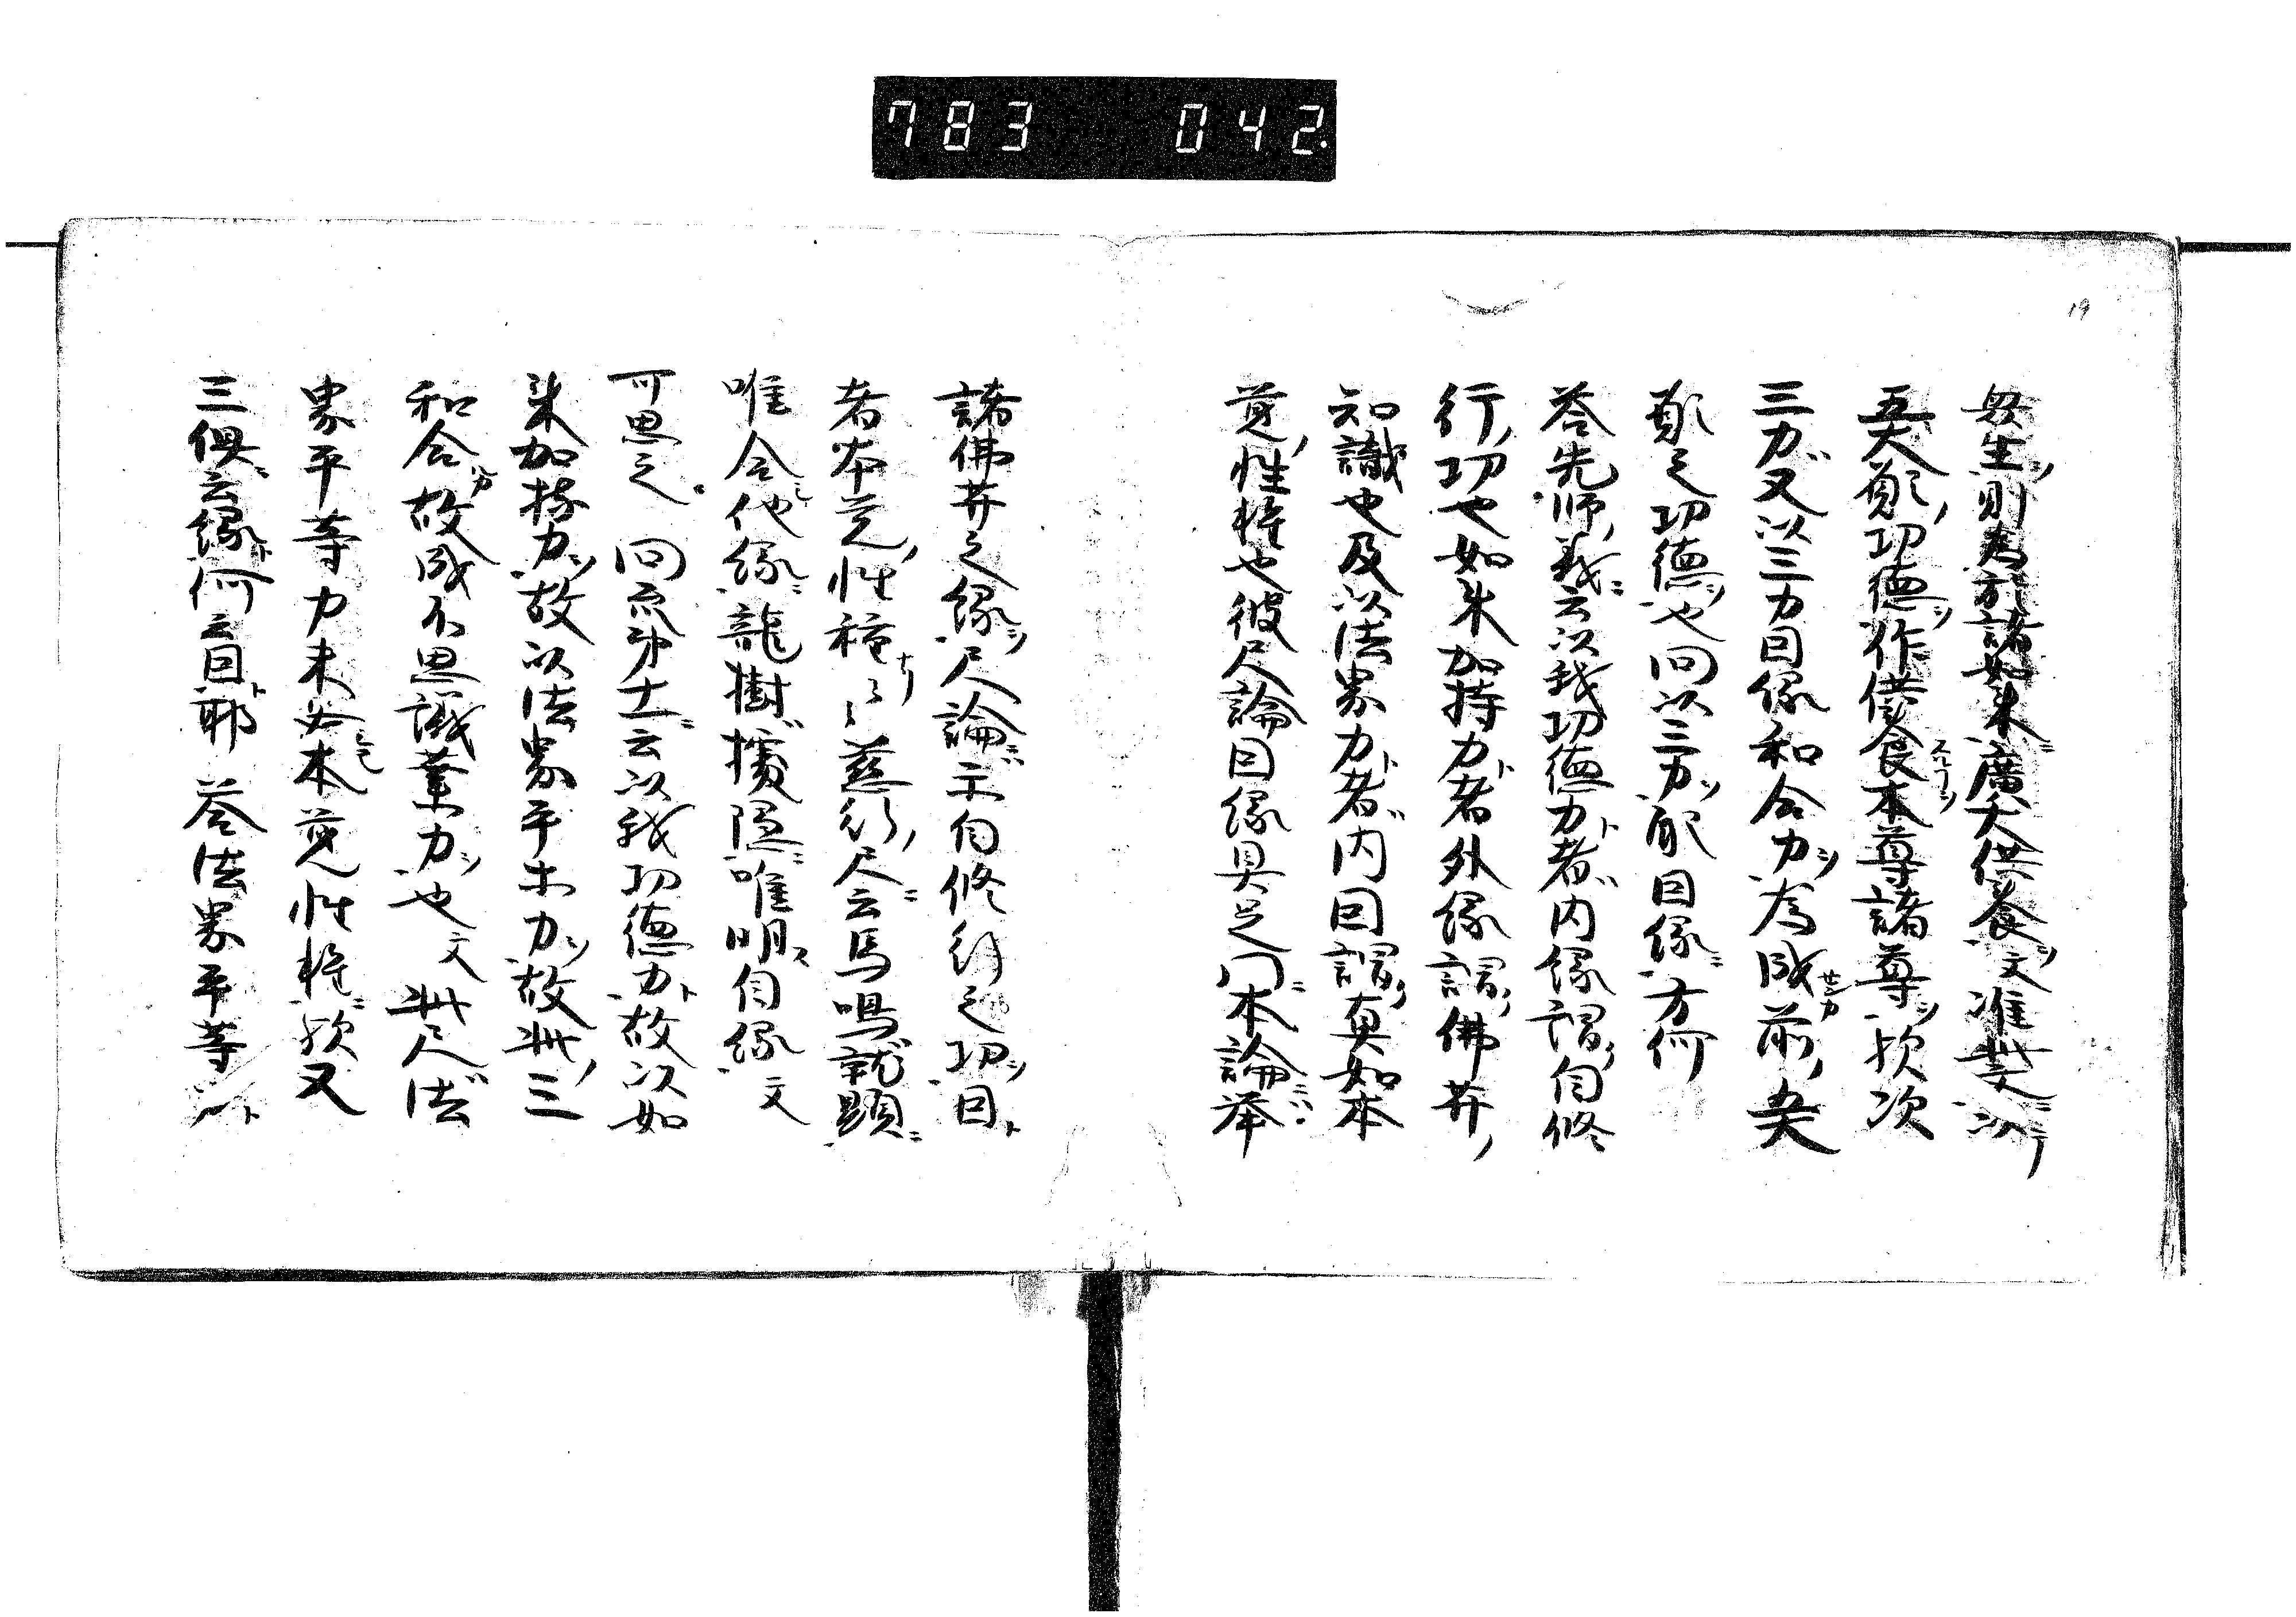 783 042.
19
無生則為於諸如来廣大供養文准此文以
五大願功德作供養本尊諸尊欤次
三力又以三力因縁和合力為成前五大
願之功德也問以三力配因縁方何
答先師義云以我功德力者内縁謂自修
行功也如来加持力者外縁謂佛菩薩
知識也及以法界力者内因謂真如本
覚性種也彼尺論因縁具足門本論挙
諸佛菩薩之縁尺論示自修行之功因
者本覚性種慈行尺云馬鳴就顕
唯合他縁龍樹據隠唯明自縁文
可思之問疏第十一云以我功德力故以如
来加持力故以法界平等力故此三
和合故成不思議業力也文此尺法
界平等力未必本覚性種欤又
三倶云縁何云因耶答法界平等